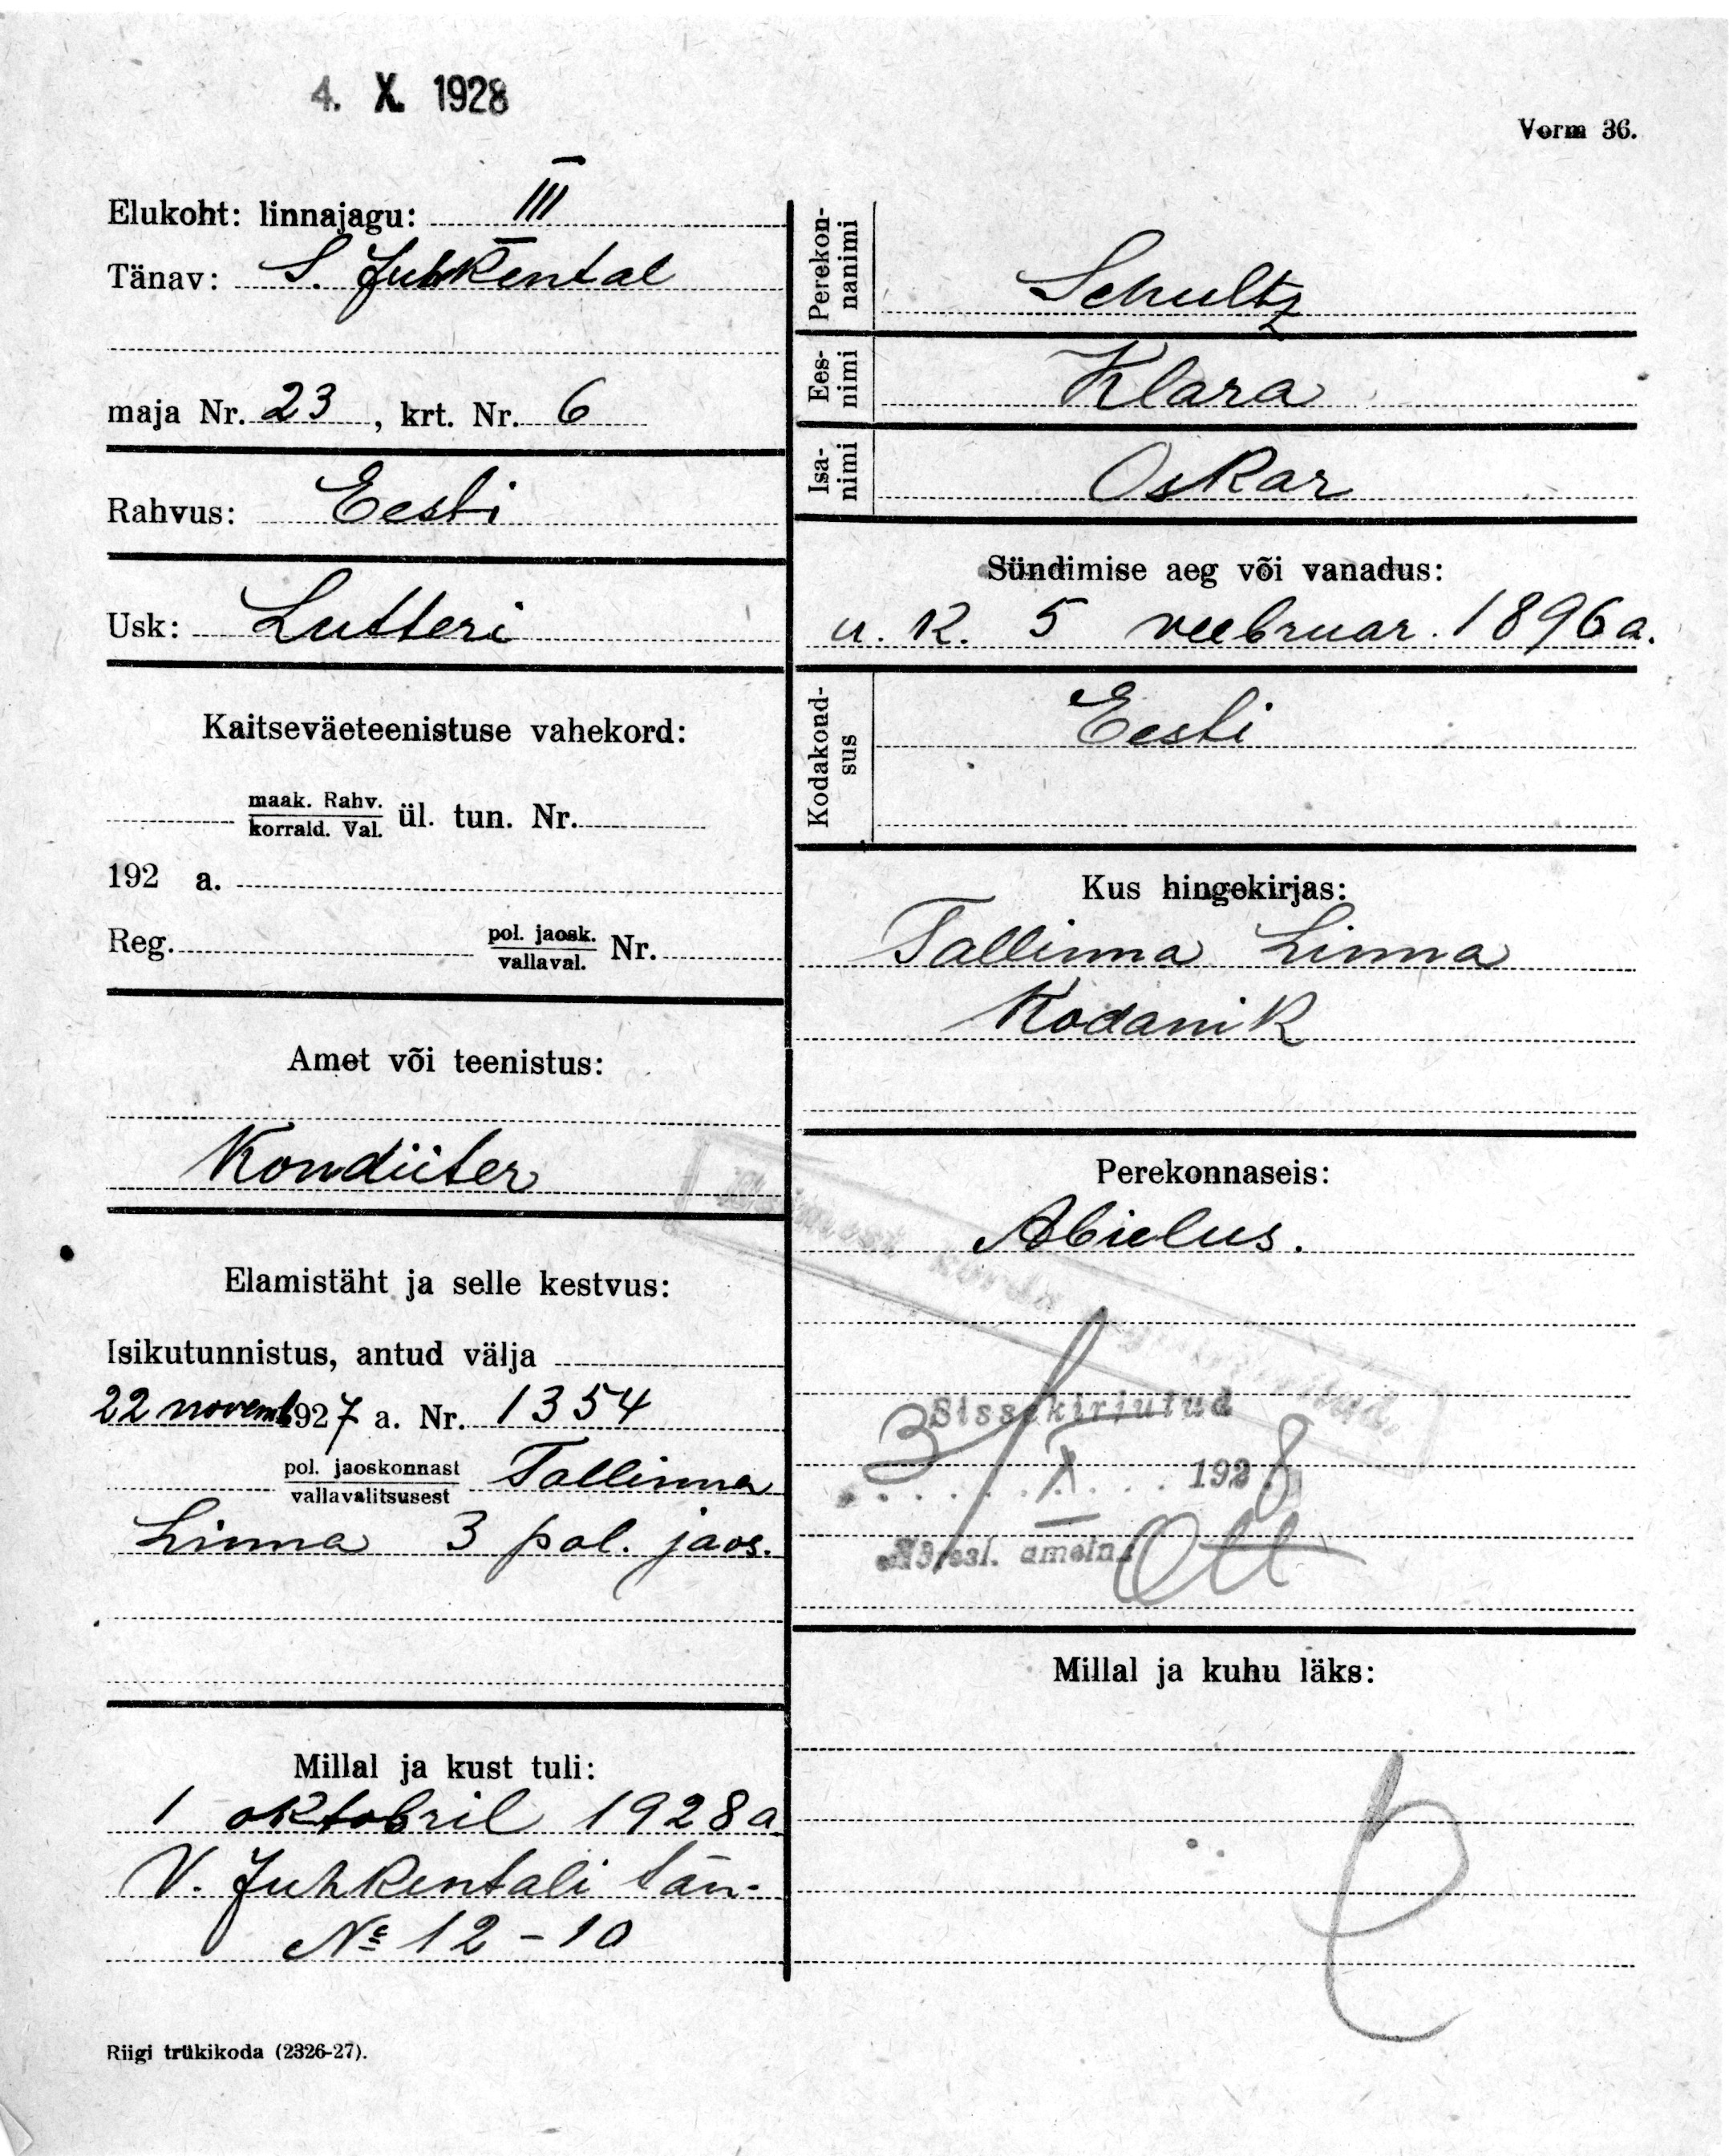 4. X. 1928
Vorm 36.
Elukoht: linnajagu: III
Tänav: S. Juhkental
maja Nr. 23, krt. Nr. 6
Rahvus: Eesti
Usk: Lutteri
Kaitseväeteenistuse vahekord:
maak. Rahv.
korrald. Val. ül. tun. Nr.
192 a.
Reg. pol. jaosk.
vallaval. Nr.
Amet või teenistus:
Kondiiter
Elamistäht ja selle kestvus:
Isikutunnistus, antud välja
22 novemb 1927 a. Nr. 1354
pol. jaoskonnast
vallavalitsusest Tallinna
Linna 3 pol. jaos.
Millal ja kust tuli:
1 oktobril 1928 a
V. Juhkentali tän.
№ 12-10
Riigi trükikoda (2326-27).
Perekon-
nanimi
Schultz
Ees-
nimi
Klara
Isa-
nimi
Oskar
Sündimise aeg või vanadus:
u. k. 5 veebruar. 1896 a.
Kodakond-
sus
Eesti
Kus hingekirjas:
Tallinna Linna
Kodanik
Perekonnaseis:
Abielus.
Sissekirjutud
3/X 1928
Millal ja kuhu läks: